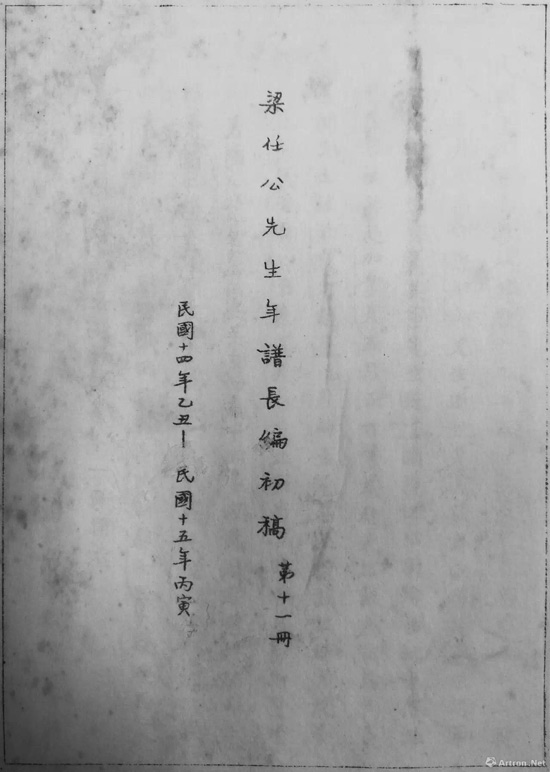 梁任公先生年譜長編初稿
第十一冊
民國十四年乙丑—民國十五年丙寅
Artron.Net